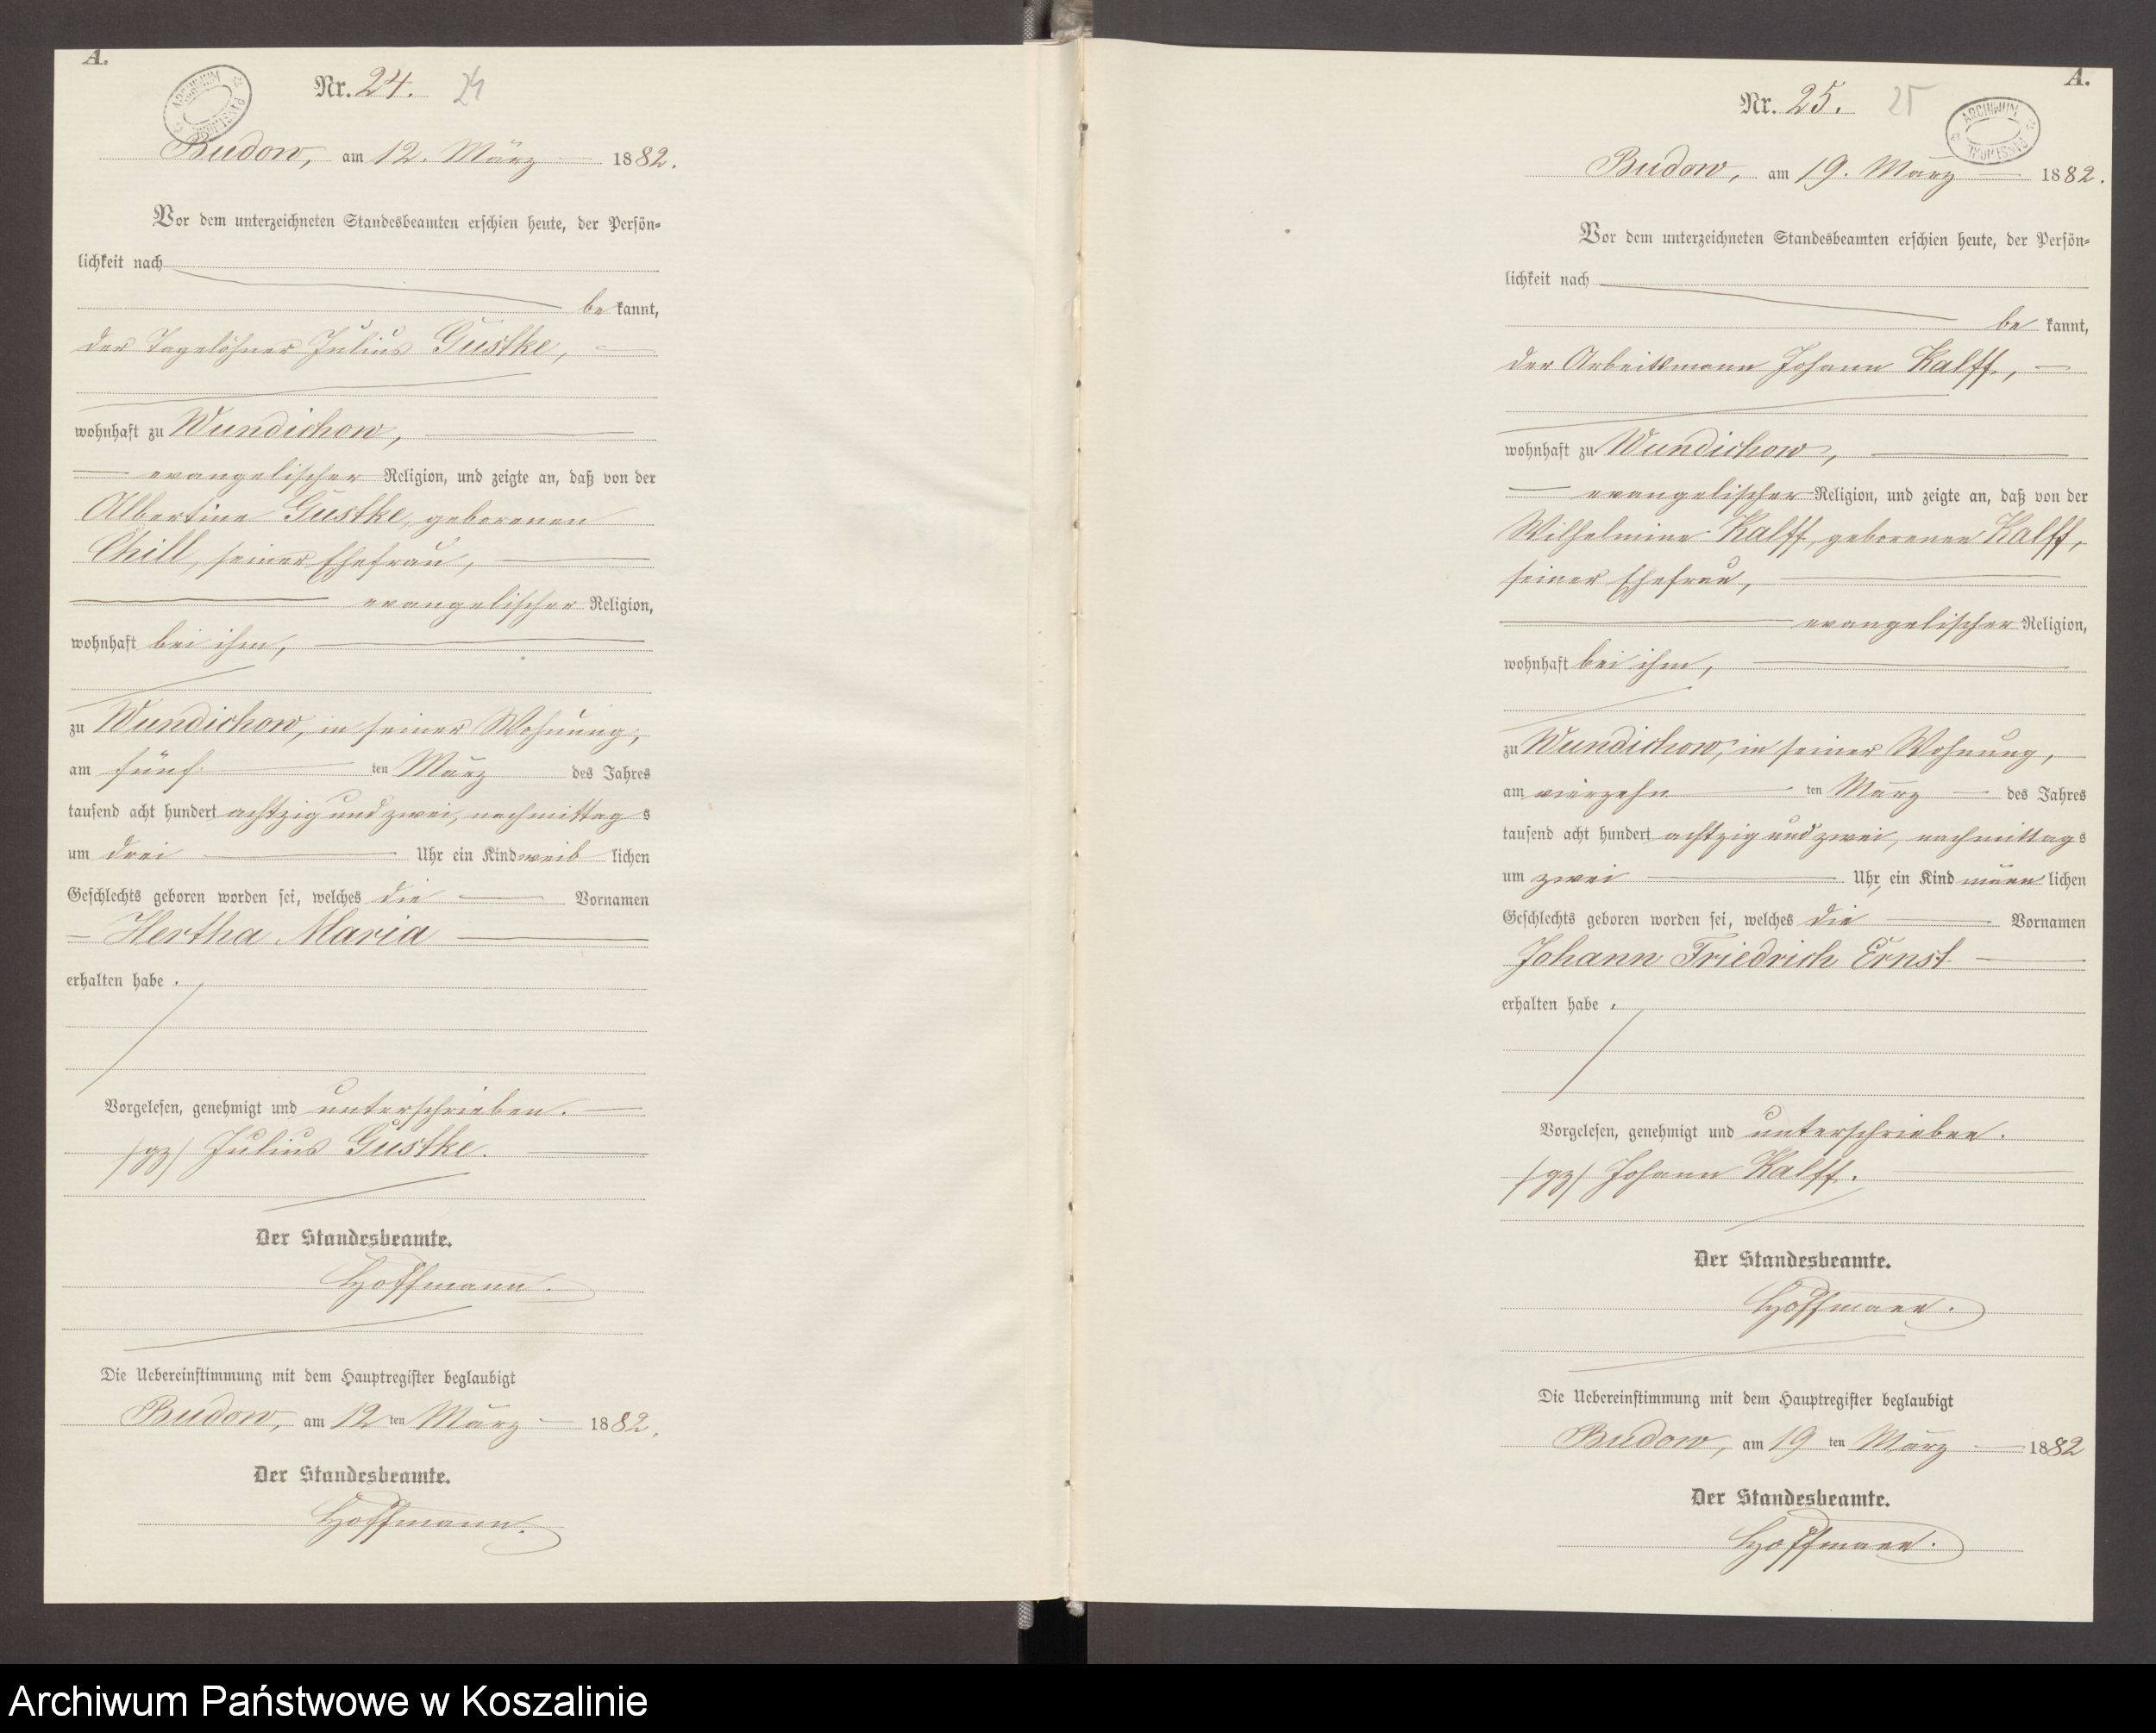 A.
Nr. 24. 24
ARCHIWUM
Budow, am 12. März 1882.
Vor dem unterzeichneten Standesbeamten erschien heute, der Persön-
lichkeit nach
be kannt,
der Tagelöhner Julius Gustke,
wohnhaft zu Wundichow,
evangelischer Religion, und zeigte an, daß von der
Albertine Gustke, geborenen
Chill, seiner Ehefrau,
evangelischer Religion,
wohnhaft bei ihm,
zu Wundichow, in seiner Wohnung,
am fünf ten März des Jahres
tausend acht hundert achtzig und zwei, nachmittag s
um drei Uhr ein Kind weib lichen
Geschlechts geboren worden sei, welches die Vornamen
Hertha Maria
erhalten habe.
Vorgelesen, genehmigt und unterschrieben.
/gz/ Julius Gustke.
Der Standesbeamte.
Hoffmann.
Die Uebereinstimmung mit dem Hauptregister beglaubigt
Budow, am 12 ten März 1882.
Der Standesbeamte.
Hoffmann.
A.
Nr. 25. 25
ARCHIWUM
Budow, am 19. März 1882.
Vor dem unterzeichneten Standesbeamten erschien heute, der Persön-
lichkeit nach
be kannt,
der Arbeitsmann Johann Kalff,
wohnhaft zu Wundichow,
evangelischer Religion, und zeigte an, daß von der
Wilhelmine Kalff, geborenen Kalff,
seiner Ehefrau,
evangelischer Religion,
wohnhaft bei ihm,
zu Wundichow, in seiner Wohnung,
am vierzehn ten März des Jahres
tausend acht hundert achtzig und zwei, nachmittag s
um zwei Uhr, ein Kind männ lichen
Geschlechts geboren worden sei, welches die Vornamen
Johann Friedrich Ernst
erhalten habe.
Vorgelesen, genehmigt und unterschrieben.
/gz/ Johann Kalff.
Der Standesbeamte.
Hoffmann.
Die Uebereinstimmung mit dem Hauptregister beglaubigt
Budow, am 19 ten März 1882
Der Standesbeamte.
Hoffmann.
Archiwum Państwowe w Koszalinie